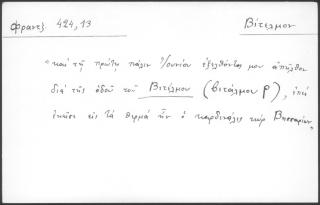 Φραντζ. 424,13
Βίτερμον
"καὶ τῇ πρώτῃ πάλιν Ἰουνίου ἐξελθόντος μου ἀπῆλθον
διὰ τῆς ὁδοῦ τοῦ Βιτέρμου (Βιτάλμου P), ἐπεὶ
ἐκεῖσε εἰς τὰ θερμὰ ἦν ὁ καρδινάλις κὺρ Βησσαρίων"